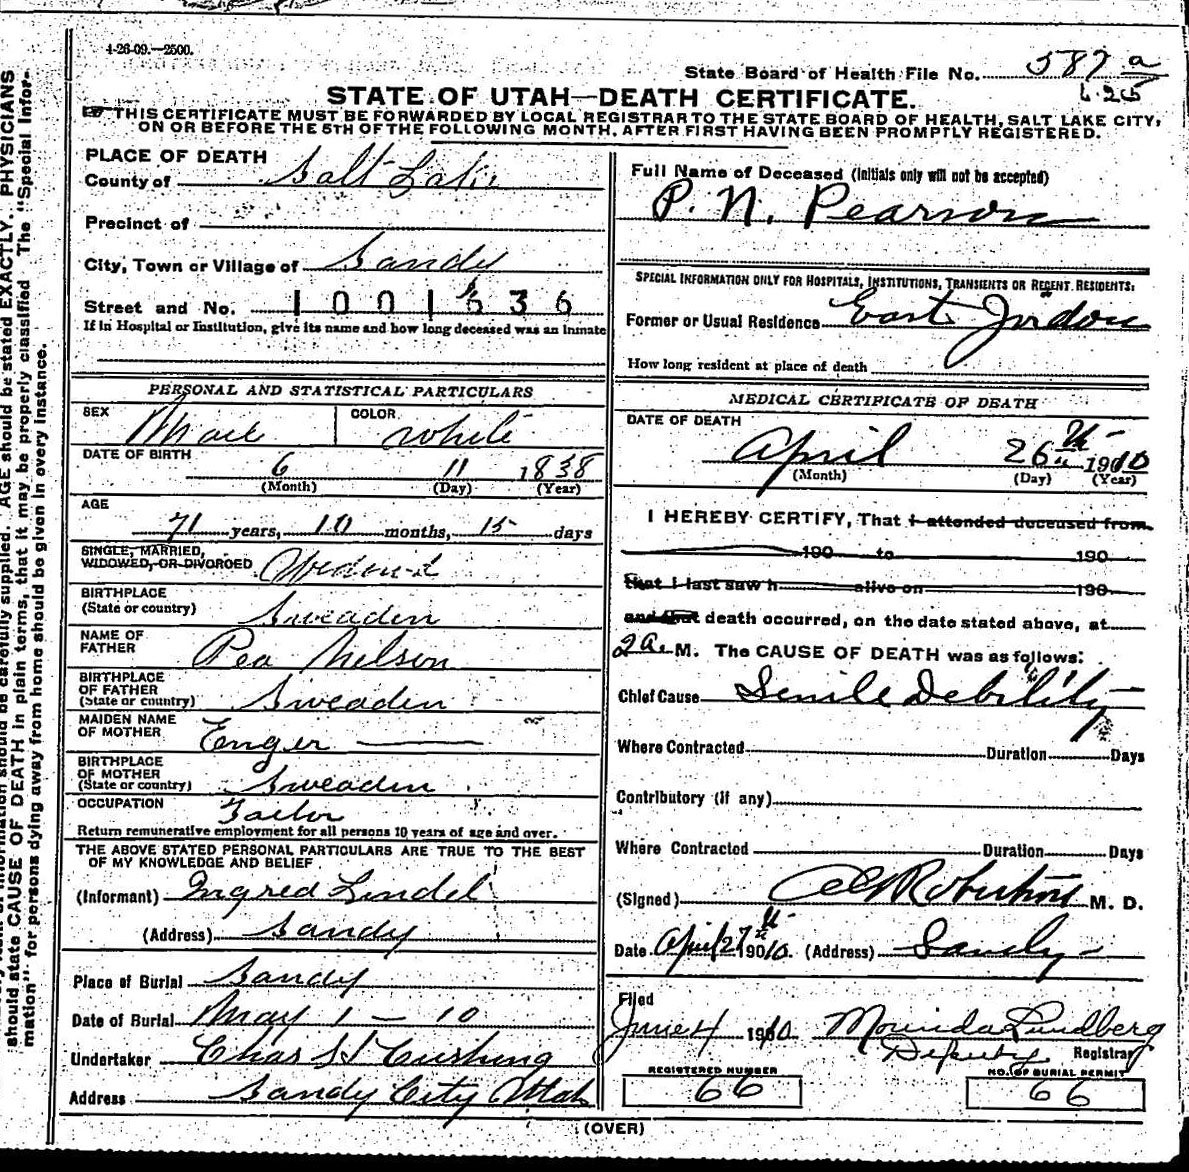 4-26-09.—2500.
State Board of Health File No. 587 a
STATE OF UTAH—DEATH CERTIFICATE.
THIS CERTIFICATE MUST BE FORWARDED BY LOCAL REGISTRAR TO THE STATE BOARD OF HEALTH, SALT LAKE CITY,
ON OR BEFORE THE 5TH OF THE FOLLOWING MONTH, AFTER FIRST HAVING BEEN PROMPTLY REGISTERED.
PLACE OF DEATH
County of Salt Lake
Precinct of
City, Town or Village of Sandy
Street and No. 1001636
If in Hospital or Institution, give its name and how long deceased was an inmate
PERSONAL AND STATISTICAL PARTICULARS
SEX Male COLOR White
DATE OF BIRTH 6 11 1838
(Month) (Day) (Year)
AGE
71 years, 10 months, 15 days
SINGLE, MARRIED,
WIDOWED, OR DIVORCED
BIRTHPLACE
(State or country) Sweaden
NAME OF
FATHER Pea Nilson
BIRTHPLACE
OF FATHER
(State or country) Sweaden
MAIDEN NAME
OF MOTHER Enger
BIRTHPLACE
OF MOTHER
(State or country) Sweaden
OCCUPATION Tailor
Return remunerative employment for all persons 10 years of age and over.
THE ABOVE STATED PERSONAL PARTICULARS ARE TRUE TO THE BEST
OF MY KNOWLEDGE AND BELIEF
(Informant) Ingred Lindel
(Address) Sandy
Place of Burial Sandy
Date of Burial May 1 - 10
Undertaker Chas H Cushing
Address Sandy City Utah
Full Name of Deceased (Initials only will not be accepted)
P. N. Pearson
SPECIAL INFORMATION ONLY FOR HOSPITALS, INSTITUTIONS, TRANSIENTS OR RECENT RESIDENTS:
Former or Usual Residence East Jordon
How long resident at place of death
MEDICAL CERTIFICATE OF DEATH
DATE OF DEATH
April 26th 1910
(Month) (Day) (Year)
I HEREBY CERTIFY, That I attended deceased from
190 to 190
that I last saw h alive on 190
and that death occurred, on the date stated above, at
2 a. M. The CAUSE OF DEATH was as follows:
Chief Cause Senile Debility
Where Contracted Duration Days
Contributory (if any)
Where Contracted Duration Days
(Signed) Robertson M. D.
Date April 27th 1910. (Address) Sandy
Filed
June 4 1910 Mourida Lundberg
Deputy Registrar
REGISTERED NUMBER
66
NO. OF BURIAL PERMIT
66
(OVER)
AGE should be stated EXACTLY. PHYSICIANS
should state CAUSE OF DEATH in plain terms, that it may be properly classified. The "Special Infor-
mation" for persons dying away from home should be given in every instance.